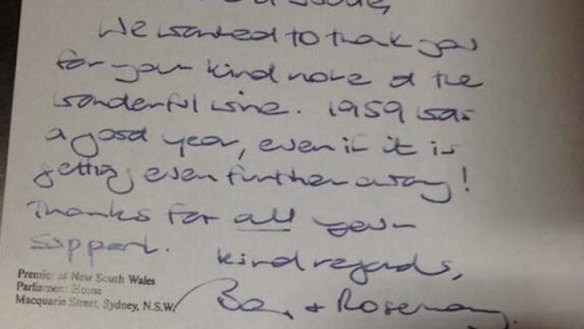 We wanted to thank you
for your kind note & the
wonderful wine. 1959 was
a good year, even if it is
getting even further away!
Thanks for all your
support.
kind regards,
Premier of New South Wales
Parliament House
Macquarie Street, Sydney, N.S.W.
Barry + Rosemary.